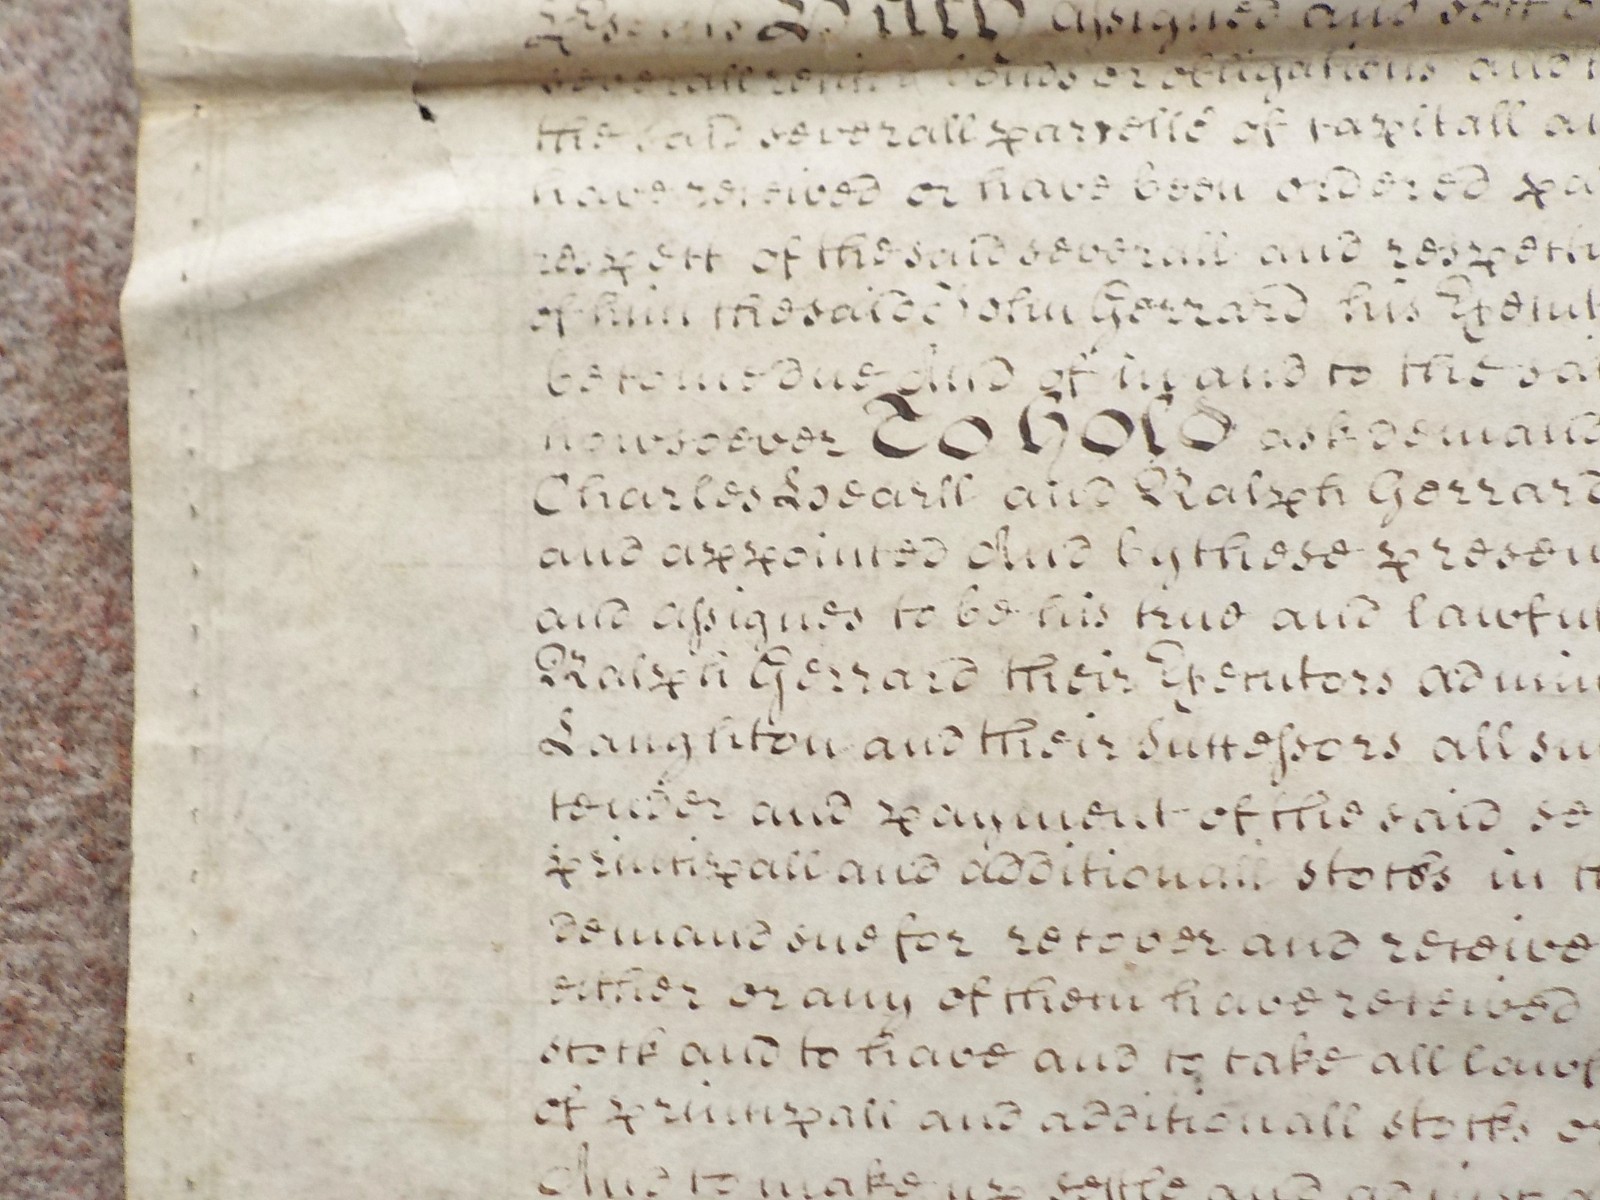 presents Doth assigned and sett o
severall bonds or obligations and
the said severall parcells of capitall an
have received or have been ordered pai
respect of the said severall and respecti
of him the said John Gerrard his Execut
become due And of in and to the sai
howsoever To Hold ask demand
Charles Bearll and Ralph Gerrard
and appointed And by these presen
and assignes to be his true and lawfu
Ralph Gerrard their Executors admin
Laughton and their Successors all su
tender and payment of the said se
principall and additionall stocks in t
demand sue for recover and receive
either or any of them have received
stock and to have and to take all lawf
of principall and additionall stocks or
And to make up settle and